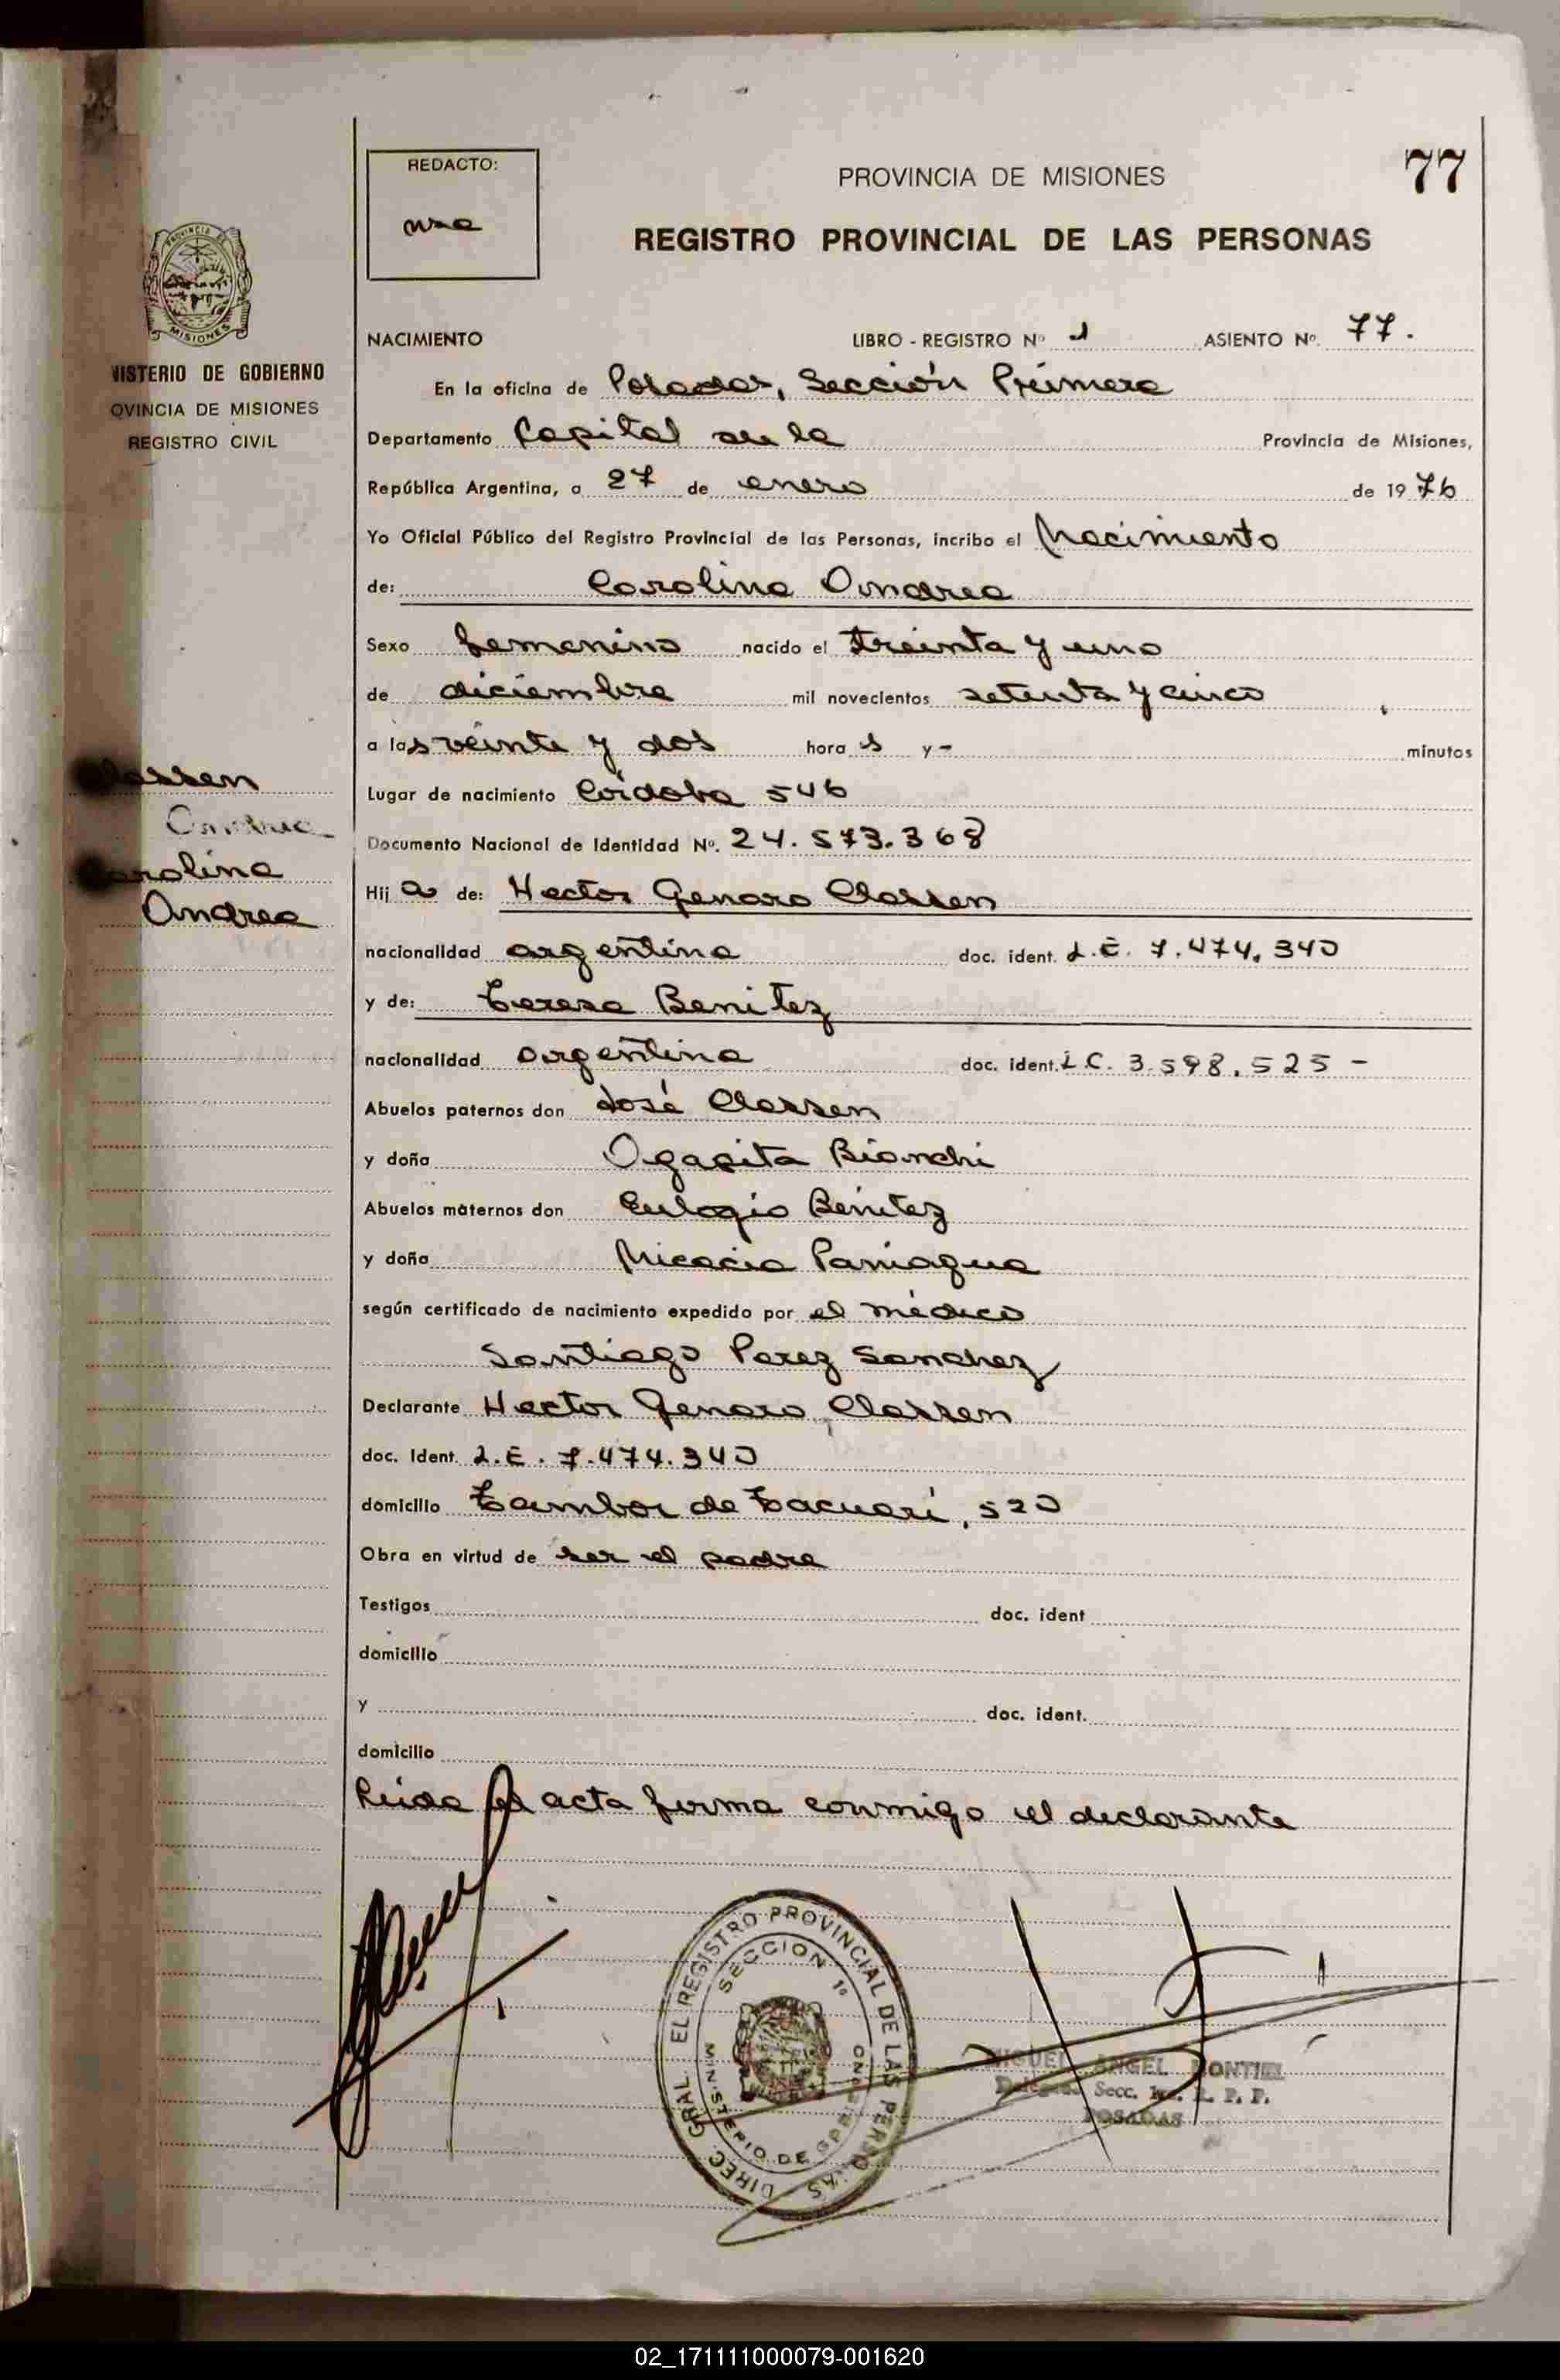 77
REDACTO:
PROVINCIA DE MISIONES
REGISTRO PROVINCIAL DE LAS PERSONAS
MISIONES
NISTERIO DE GOBIERNO
OVINCIA DE MISIONES
REGISTRO CIVIL
NACIMIENTO LIBRO - REGISTRO Nº 1 ASIENTO Nº. 77.
En la oficina de Posadas, Sección Primera
Departamento Capital de la Provincia de Misiones,
República Argentina, a 27 de enero de 1976
Yo Oficial Público del Registro Provincial de las Personas, incribo el Nacimiento
de: Carolina Andrea
Sexo femenino nacido el treinta y uno
de diciembre mil novecientos setenta y cinco
a las veinte y dos hora s y - minutos
Classen
Lugar de nacimiento Córdoba 546
Documento Nacional de Identidad Nº. 24.573.368
Carolina
Andrea
Hij a de: Hector Genaro Classen
nacionalidad argentina doc. ident. L.E. 7.474.340
y de: Teresa Benitez
nacionalidad argentina doc. ident. L.C. 3.598.525 -
Abuelos paternos don José Classen
y doña Agapita Bianchi
Abuelos maternos don Eulogio Benitez
y doña Nicacia Paniagua
según certificado de nacimiento expedido por el médico
Santiago Perez Sanchez
Declarante Hector Genaro Classen
doc. Ident. L.E. 7.474.340
domicilio Tambor de Tacuarí, 520
Obra en virtud de ser el padre
Testigos doc. ident
domicilio
y doc. ident.
domicilio
Leida el acta firma conmigo el declarante
DIREC. GRAL. EL REGISTRO PROVINCIAL DE LAS PERSONAS
SECCION 1º
MINISTERIO DE
MIGUEL ANGEL MONTIEL
Secc. R. P. P.
POSADAS
02_171111000079-001620